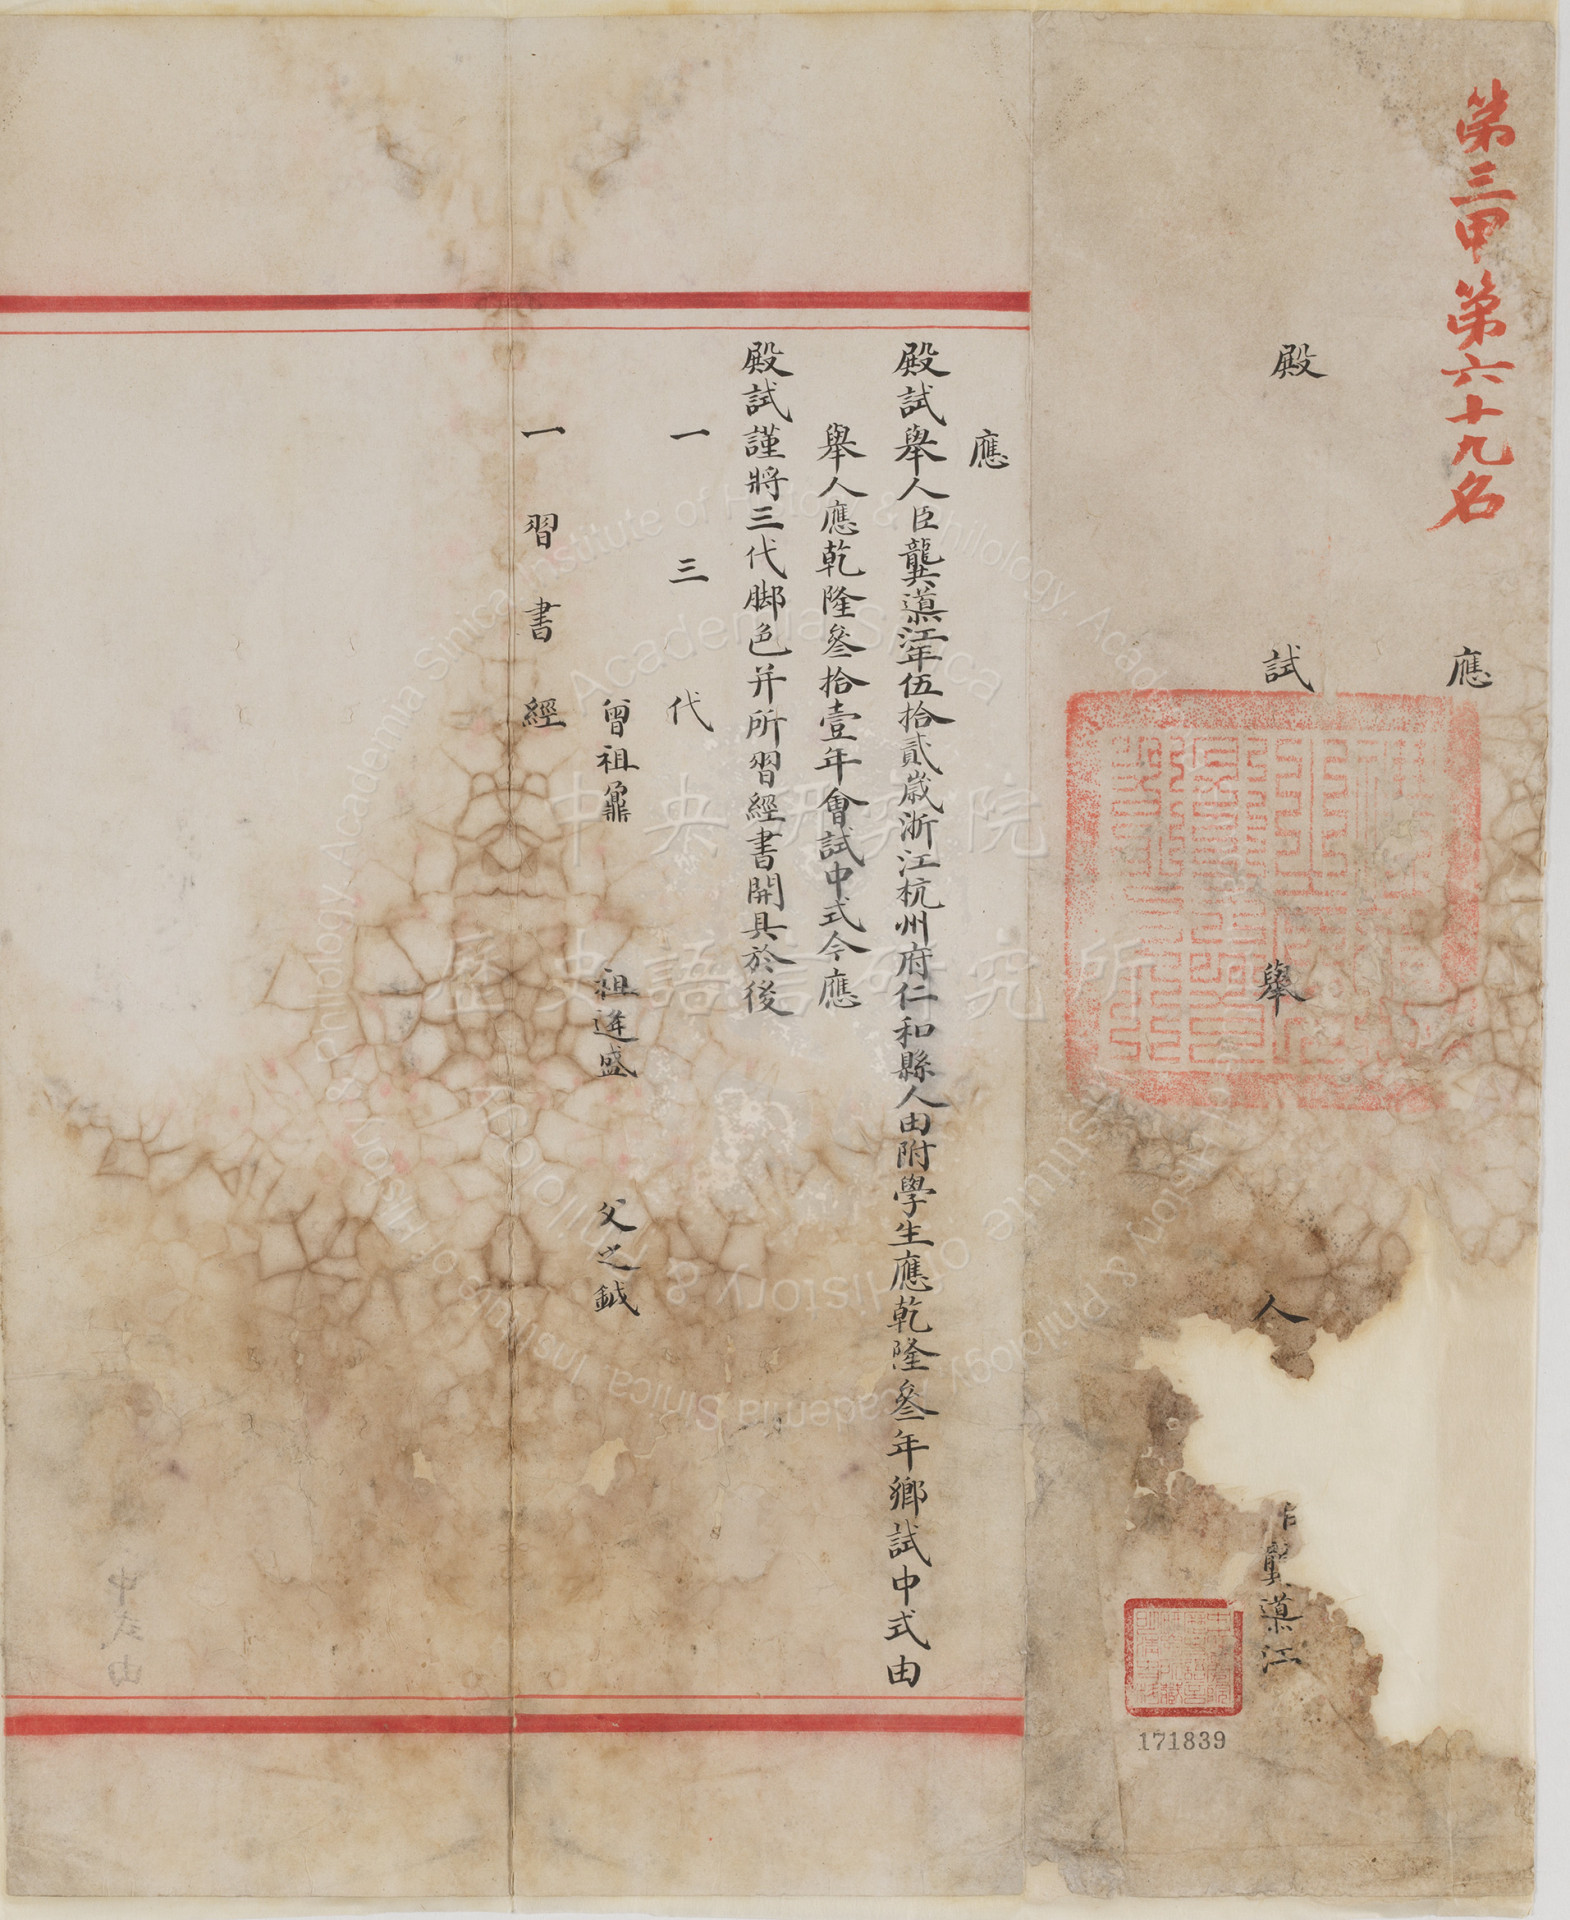 第三甲第六十九名
應
殿試舉人
龔導江
171839
應
殿試舉人臣龔導江年伍拾貳歲浙江杭州府仁和縣人由附學生應乾隆叄年鄉試中式由
舉人應乾隆叄拾壹年會試中式今應
殿試謹將三代脚色并所習經書開具於後
一三代
曾祖鼐 祖逢盛 父之鉞
一習書經
中央研究院
歷史語言研究所
Institute of History & Philology, Academia Sinica